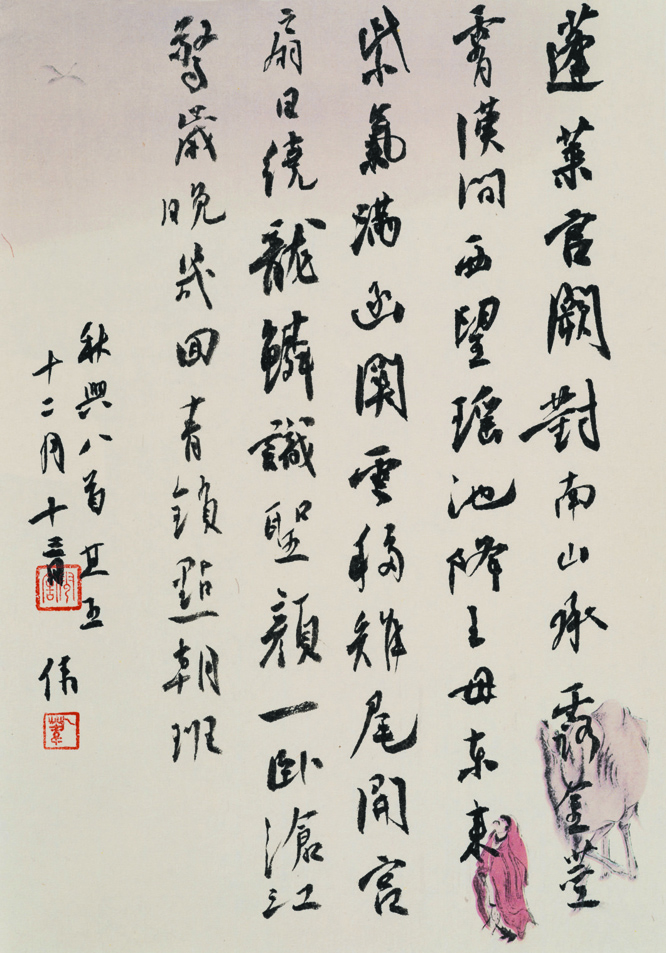 蓬莱宫闕對南山承露金莖
霄漢間西望瑶池降王母東来
紫氣满函関雲移雉尾開宫
扇日繞龍鱗識聖顔一卧滄江
驚歳晚幾回青鎖點朝班
秋興八首其五
十二月十三日 偉